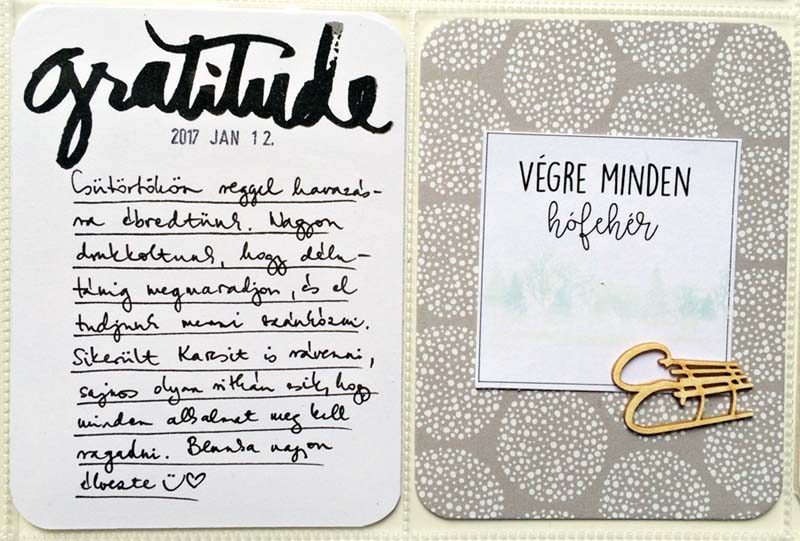 gratitude
2017 JAN 12.
Csütörtökön reggel havazás-
ra ébredtünk. Nagyon
drukkoltunk, hogy délu-
tánig megmaradjon, és el
tudjunk menni szánkózni.
Sikerült Karcsit is rávenni,
sajnos olyan ritkán esik, hogy
minden alkalmat meg kell
ragadni. Bennsa nagyon
élvezte ü♡
VÉGRE MINDEN
hófehér